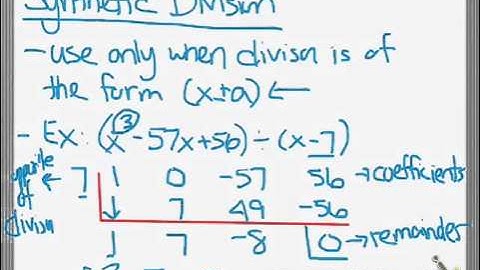 Synthetic Division
- use only when divisor is of
the form (x±a) ←
- Ex: (x³ - 57x + 56) ÷ (x - 7)
opposite of divisor ← 7 1 0 -57 56 → coefficients
↓ 7 49 -56
1 7 -8 0 → remainder